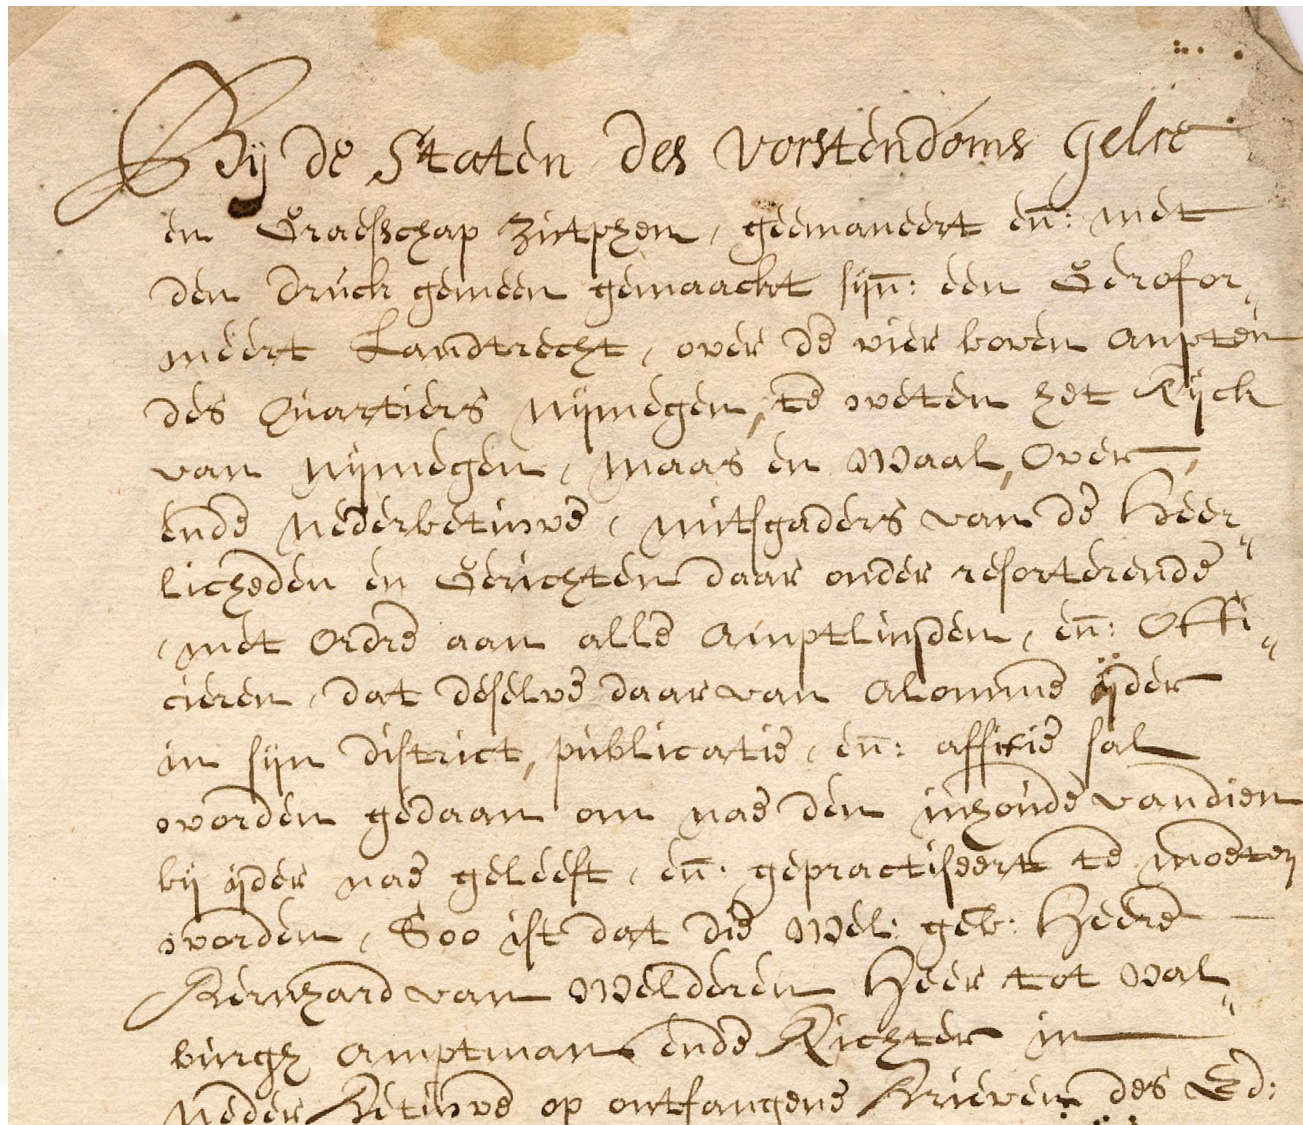 Bij de Staten des vorstendoms Gelre
en Graefschap Zutphen, geemaneert en: met
den druck gemeen gemaackt sijn: een Gerefor„
meert Landtrecht, over de vier boven Ampten
des Quartiers Nijmegen, te weten het Rijck
van Nijmegen, Maas en Waal, Over,
ende Nederbetuwe, mitsgaders van de Heer„
licheden en Gerichten daar onder resorterende
, met ordre aan alle Amptluijden, en: Offi„
cieren, dat deselve daar van alomme ijder
in sijn district, publicatie, en: affixie sal
worden gedaan om nae den inhoude vandien
bij ijder nae geleeft, en: gepractiseert te moeten
worden, Soo ist dat die Wel: geb: Heere
Bernhard van Welderen Heer tot Wal„
burgh Amptman ende Richter in
Neder Betuwe op ontfangene Brieven des Ed: